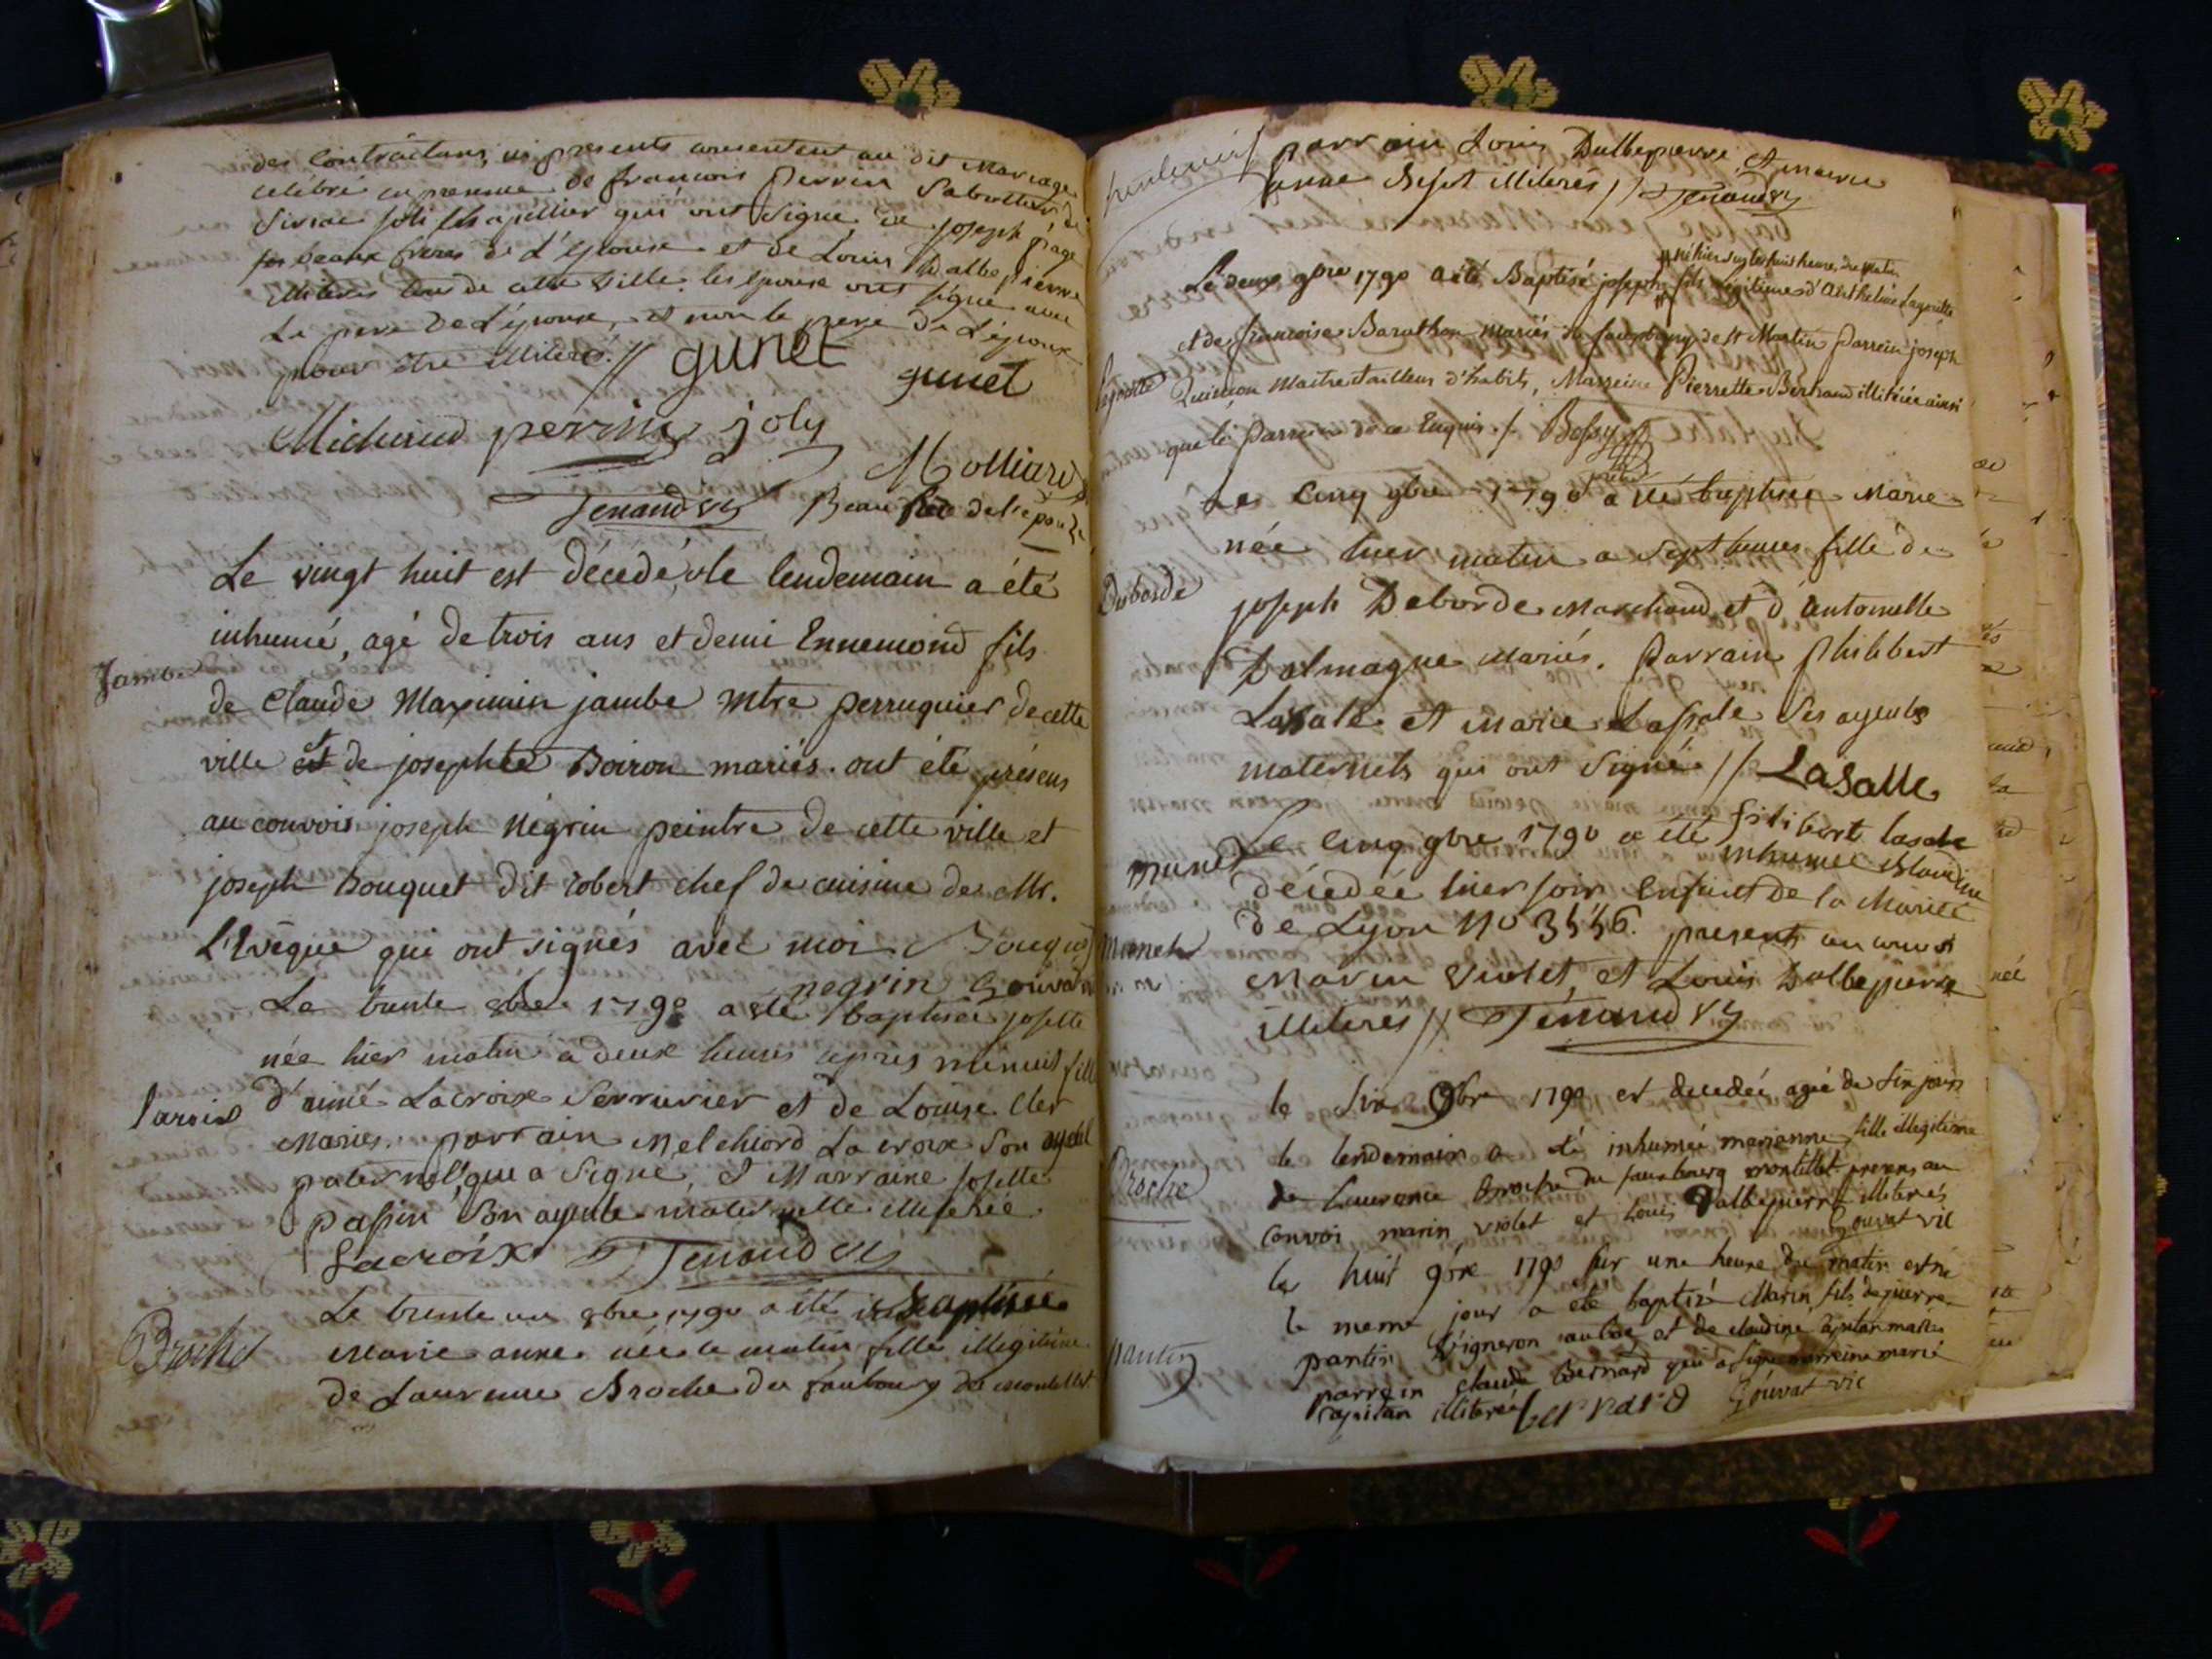 des Contractans, ici presents consentent au dit Mariage
celebré en presence de francois perrin Sabottier, de
joli chapellier qui ont Signé, de joseph page
ses beaux freres de L'epouse et de Louis Dalbepierre
illiterés tous de cette Ville. les epoux ont Signé avec
Le pere De L'épouse, et non le pere De L'epoux
pour être illiteré. // gunet
gunet
Michaud perrin joly
Molliard
Tenand vic Beau de lepouse
Le vingt huit est décedé, et le lendemain a été
inhumé, agé de trois ans et demi Ennemond fils
Jambe
de Claude Maximin jambe Mtre perruquier de cette
ville et de josephte Boiron mariés. ont été présens
au convois joseph Négrin peintre de cette ville et
joseph bouquet dit robert chef de cuisine de Mr.
L'Evêque qui ont signés avec moi Bouquet
negrin Gouvat
Le trente 8bre 1790 a été baptisée josette
née hier matin a deux heures apres minuit fille
d'aimé Lacroix Serrurier et de Louise Cler
Mariés. parrain Melchiord Lacroix Son ayeul
paternel qui a Signé, & Marraine josette
passin Son ayeule maternelle illiterée.
Lacroix Tenand vic
Le trente un 8bre 1790 a été Baptisée
Brochet
Marie anne née ce matin fille illegitime
de Laurence Broche du faubourg de montellet
parrain Louis Dalbepierre et
anne illiterés // Tenand vic
né hier sur les huit heures du matin
Le deux 9bre 1790 a été Baptisé joseph fils légitime d'Anthelme Lagoutte
et de francoise Barathon mariés du fauxbourg de St Martin Parrein joseph
Quinson Maitre tailleur d'habits, Marreine Pierrette Bertrand illiterée ainsi
que le Parrein de ce Enquis. / Bossy
Le Cinq 9bre 1790 a été baptisée Marie
née hier matin a Sept heures fille de
Deborde
joseph Deborde Marchand et d'antoinette
Dalmagne Mariés. Parrain Philibert
Lasale et Marie Lassale Ses ayeuls
maternels qui ont Signé // Lasalle
filibert lasale
Le Cinq 9bre 1790 a été inhumée Claudine
décedée hier soir Enfant De la Charité
De Lyon No present au convoi
Marin Violet, et Louis Dalbepierre
illiterés // Tenand vic
le Six 9bre 1790 est decedée agée de Six jours
le lendemain a été inhumée marianne fille illegitime
Broche
de Laurence Broche du fauxbourg montellet presens au
convoi marin violet et Louis Dalbepierre illiterés
Gouvat vic
le huit 9bre 1790 sur une heure du matin est né
le meme jour a été baptisé Marin fils de pierre
pantin
pantin Vigneron et de claudine mariés
parrein claude Bernard qui a Signé marreine marie
illiterée bernard Gouvat vic